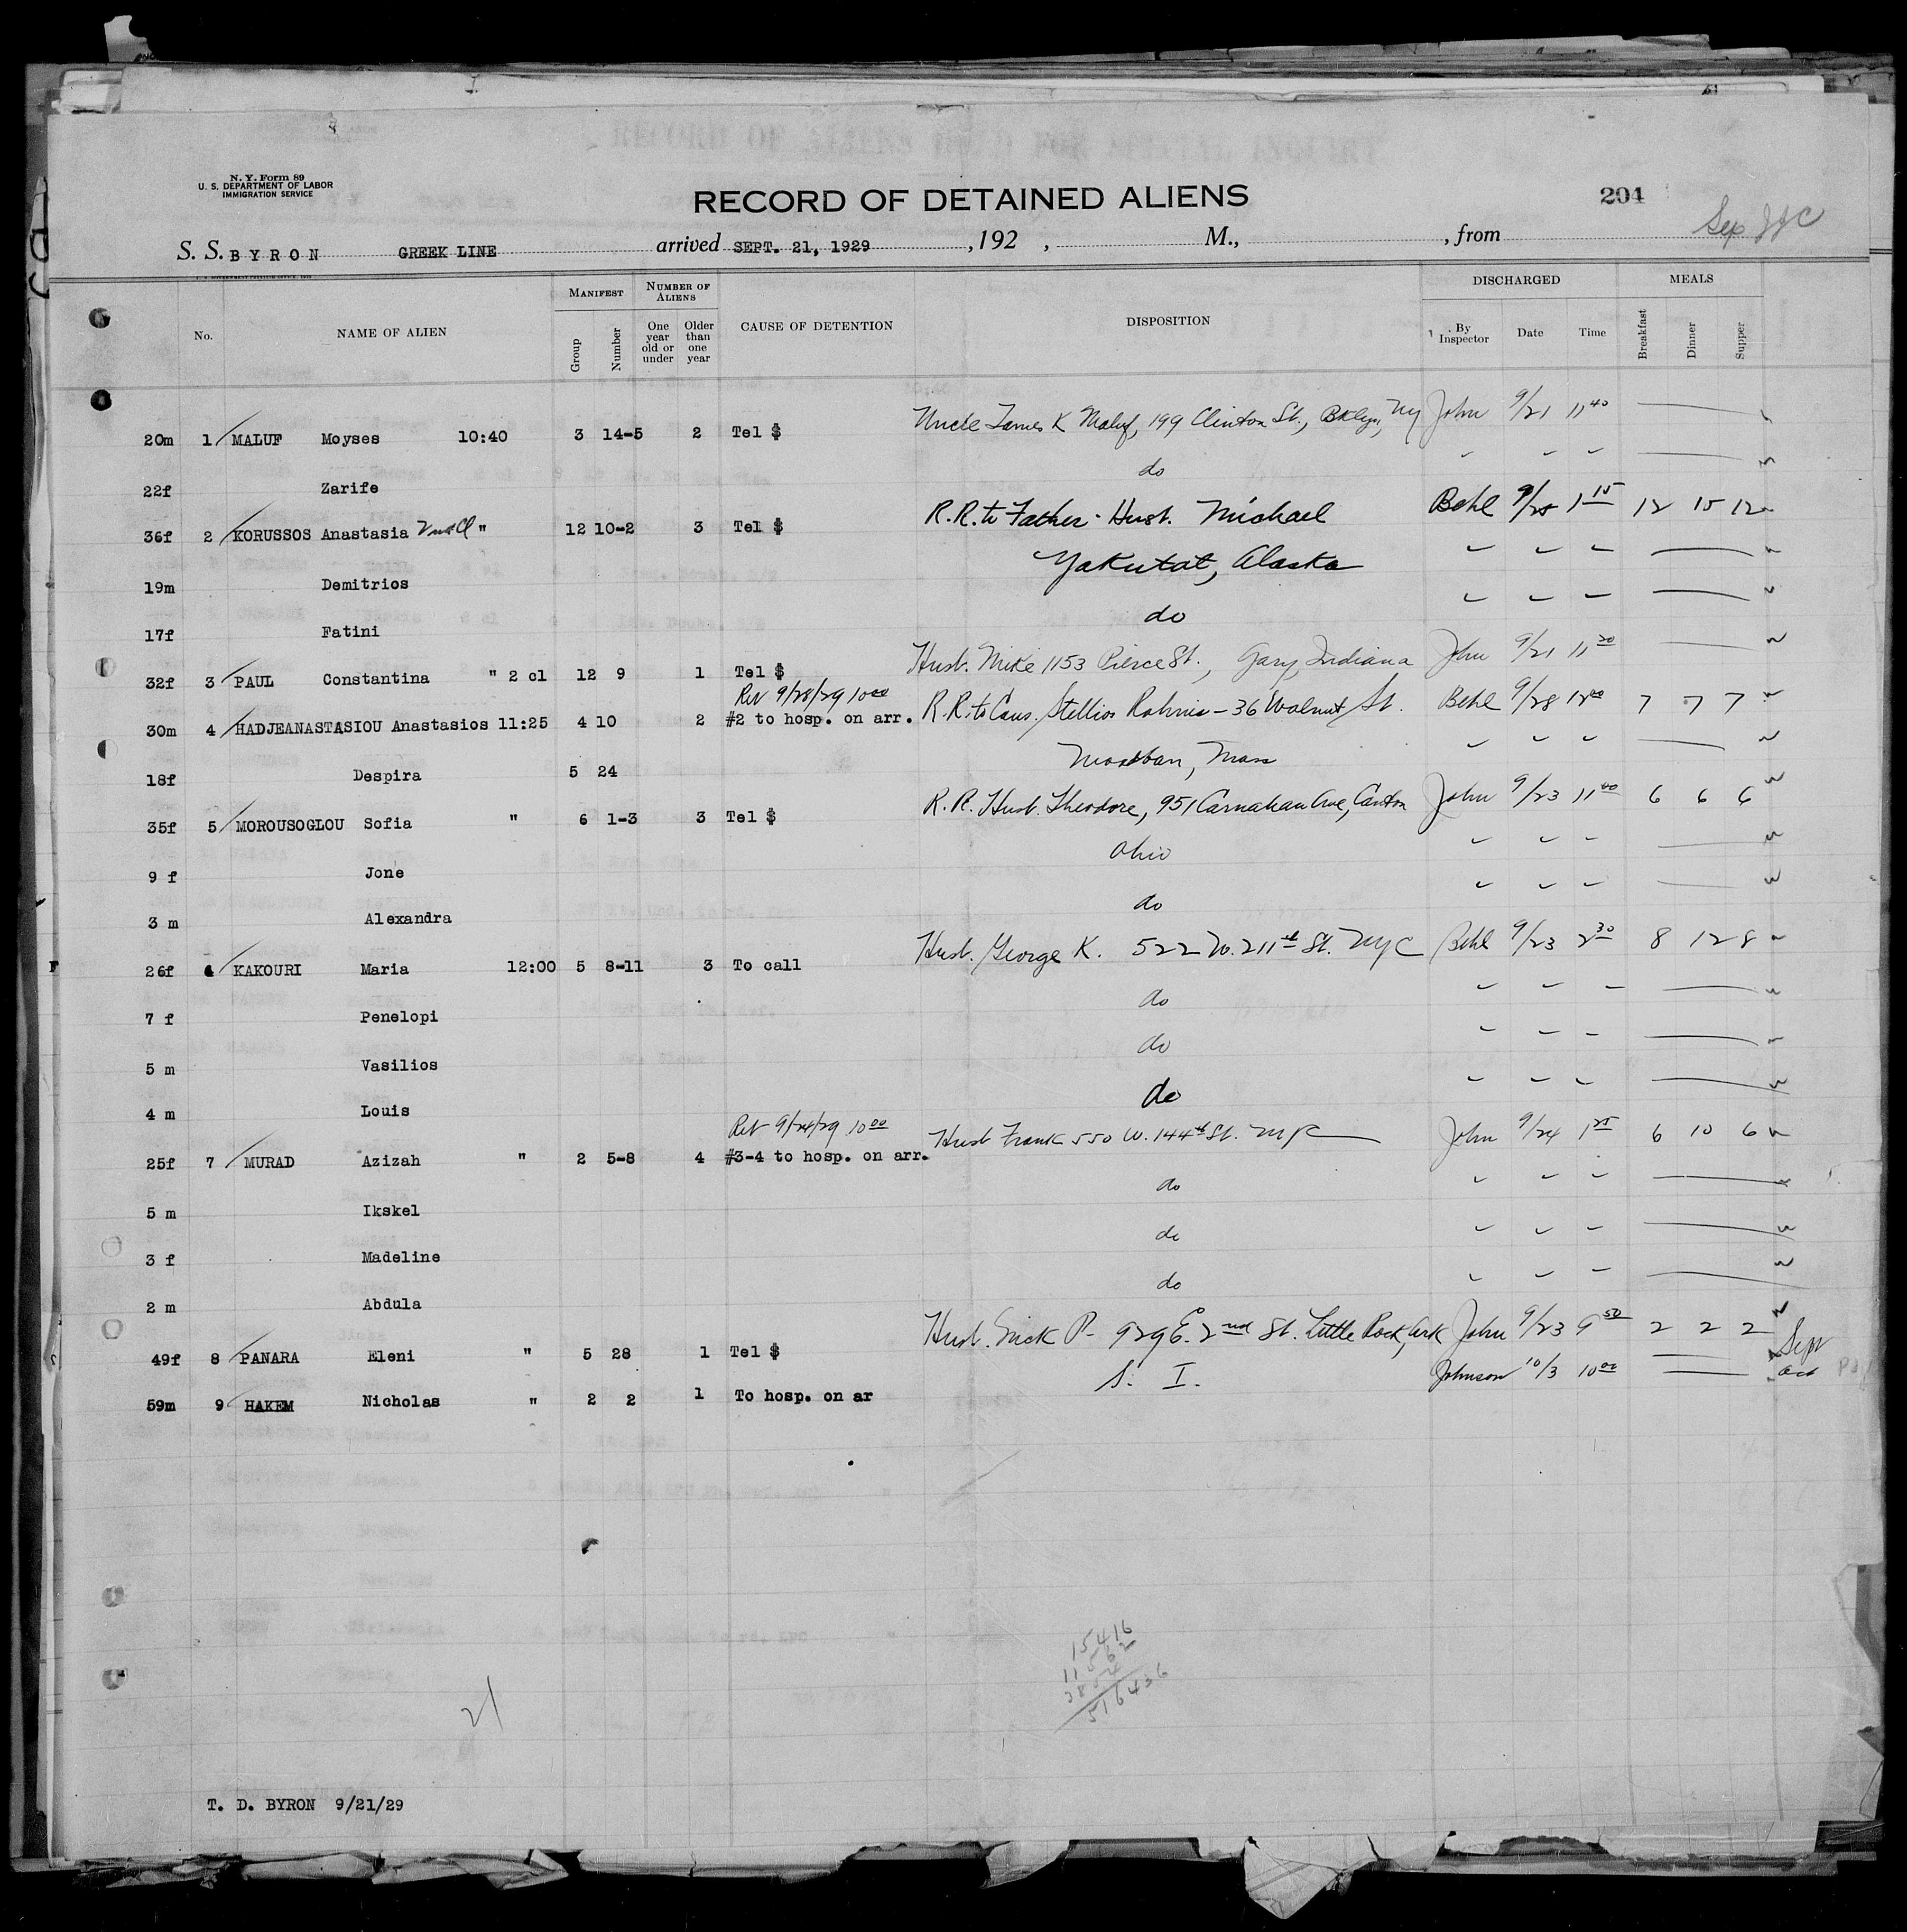 N. Y. Form 89
U. S. DEPARTMENT OF LABOR
IMMIGRATION SERVICE
RECORD OF DETAINED ALIENS
204
S. S. BYRON GREEK LINE arrived SEPT. 21, 1929, 192 , M., , from
No. NAME OF ALIEN MANIFEST Group Number NUMBER OF ALIENS One year old or under Older than one year CAUSE OF DETENTION DISPOSITION DISCHARGED By Inspector Date Time MEALS Breakfast Dinner Supper
20m 1 MALUF Moyses 10:40 3 14-5 2 Tel $ Uncle James K Maluf, 199 Clinton St., Bklyn, NY John 9/21 11 40
22f Zarife do
36f 2 KORUSSOS Anastasia " 12 10-2 3 Tel $ R.R. to Father - Husb. Michael Behl 1 15 12 15 12
19m Demitrios Yakutat, Alaska
17f Fatini do
32f 3 PAUL Constantina " 2 cl 12 9 1 Tel $ Husb. Mike 1153 Pierce St., Gary, Indiana John 9/21 11 20
Ret 9/28/29 10 00
30m 4 HADJEANASTASIOU Anastasios 11:25 4 10 2 #2 to hosp. on arr. R.R. to Cous. Stellios - 36 Walnut St. Behl 9/28 7 7 7
18f Despira 5 24 Mass
35f 5 MOROUSOGLOU Sofia " 6 1-3 3 Tel $ R.R. Husb. Theodore, 951 Carnahan Ave, Canton John 9/23 11 00 6 6 6
9 f Jone Ohio
3 m Alexandra do
26f 6 KAKOURI Maria 12:00 5 8-11 3 To call Husb. George K. 522 W. 211th St. NYC Behl 9/23 2 30 8 12 8
7 f Penelopi do
5 m Vasilios do
4 m Louis do
Ret 9/24/29 10 00
25f 7 MURAD Azizah " 2 5-8 4 #3-4 to hosp. on arr. Husb Frank 550 W. 144th St. NYC John 9/24 1 25 6 10 6
5 m Ikskel do
3 f Madeline do
2 m Abdula do
49f 8 PANARA Eleni " 5 28 1 Tel $ Husb. Nick P - 929 E. 2nd St. Little Rock, Ark John 9/23 9 50 2 2 2 Sept
59m 9 HAKEM Nicholas " 2 2 1 To hosp. on ar S. I. Johnson 10/3 10 00 Oct
15416
21
T. D. BYRON 9/21/29